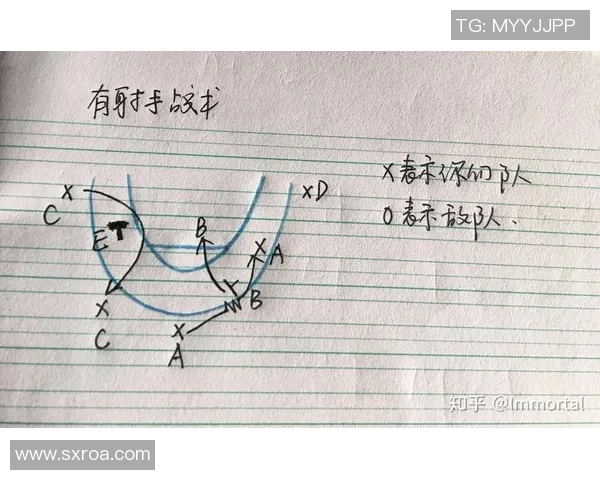 TG: MYYJJPP
有射手战术
X表示你的队
O表示敌队.
X
C
XD
E
B
X
A
X
C
B
X
A
知乎 @Immortal
www.sxroa.com